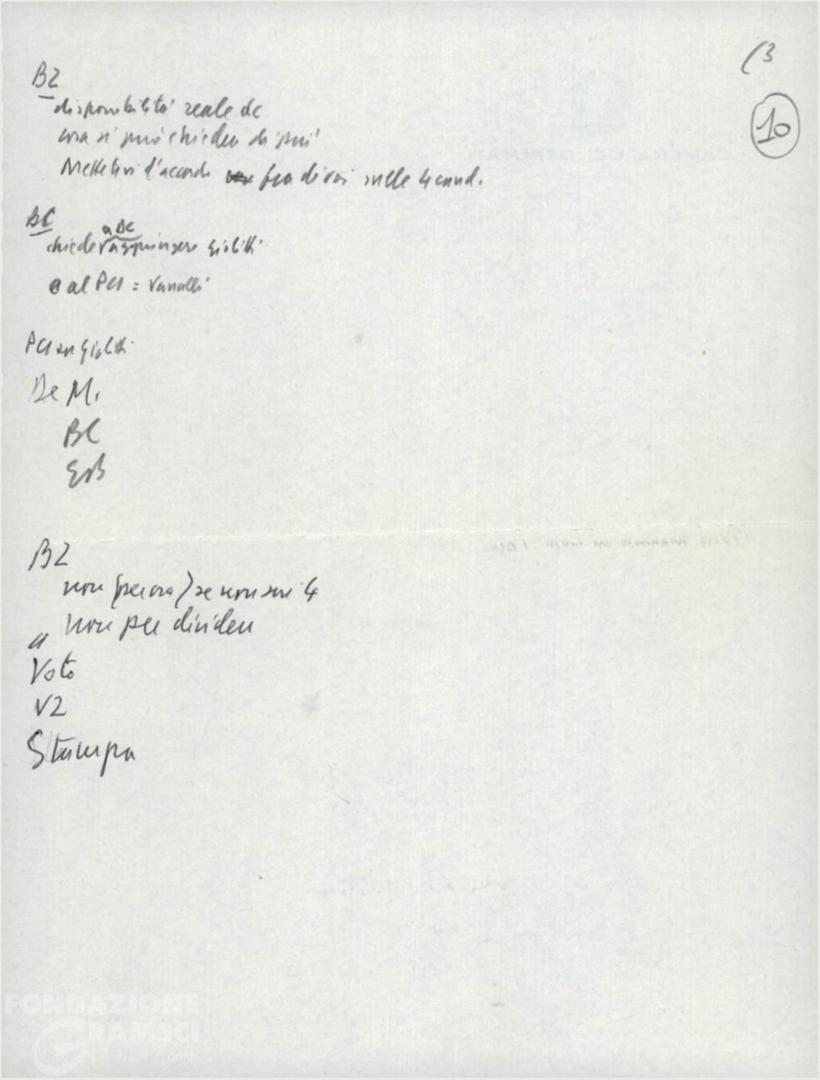 (3
10
BZ
disponibilità reale dc
cosa si può chieder di più
Mettetevi d'accordo fra di voi sulle 4 cand.
BC
a DC
chiede raggiungere Giolitti
e al PCI = Vassalli
PCI su Giolitti
De M.
BC
EnB
BZ
non (per ora) se non sui 4
" non per dividere
Voto
VZ
Stampa
FONDAZIONE
GRAMSCI